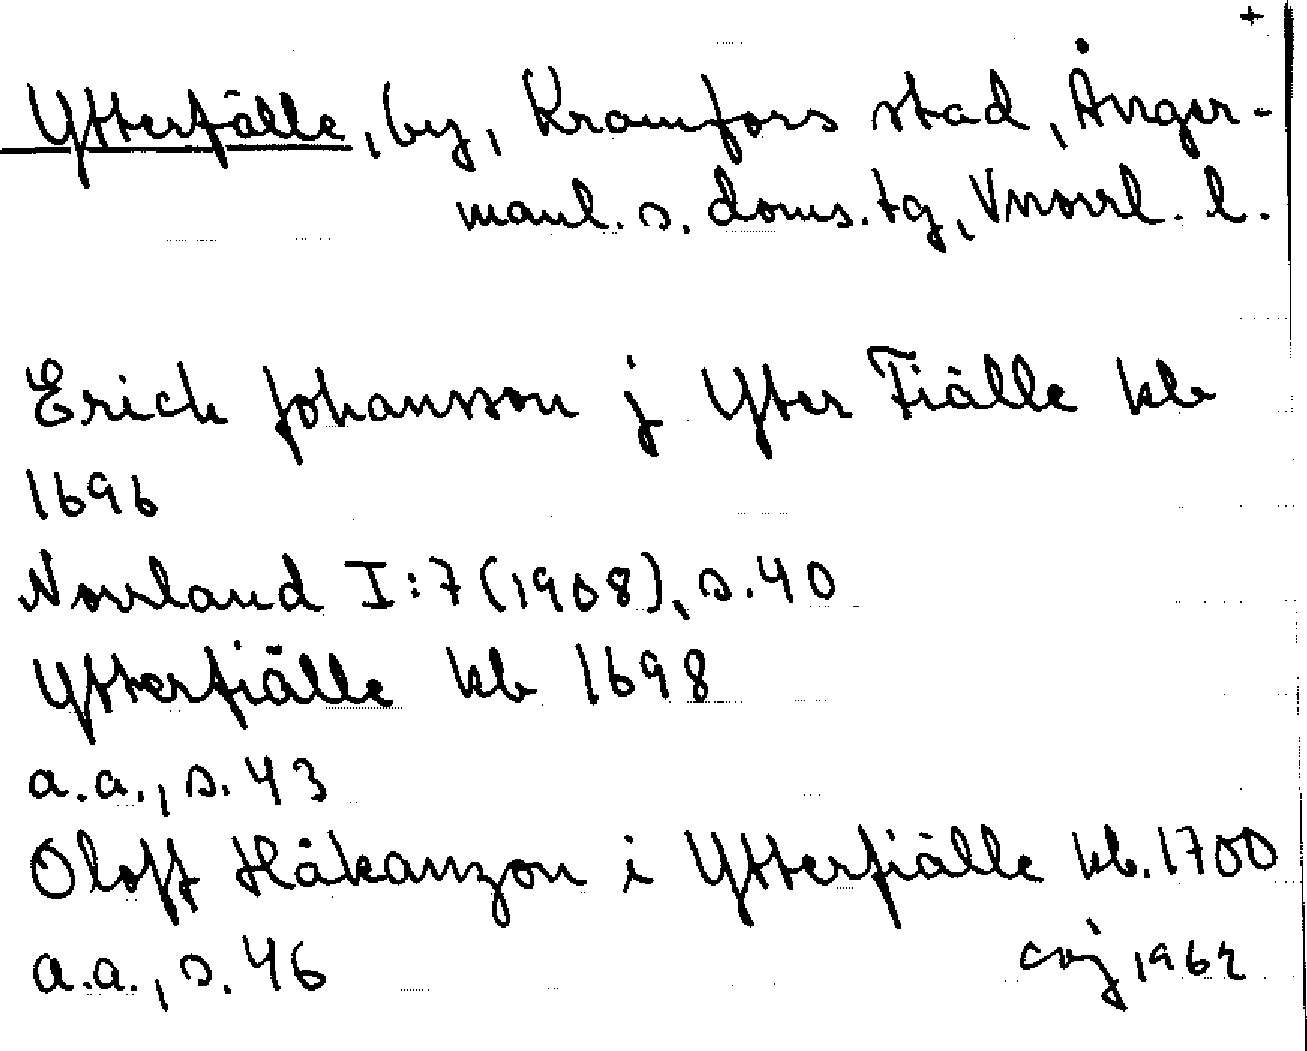 +
Ytterfälle, by, Kramfors stad, Ånger-
manl. s. doms. tg, Vnorrl. l.
Erich Johansson j Ytter Fiälle kb
1696
Norrland I:7 (1908), s. 40
Ytterfiälle kb 1698
a.a., s. 43
Oloff Håkanzon i Ytterfiälle kb. 1700
a.a., s. 46
1962